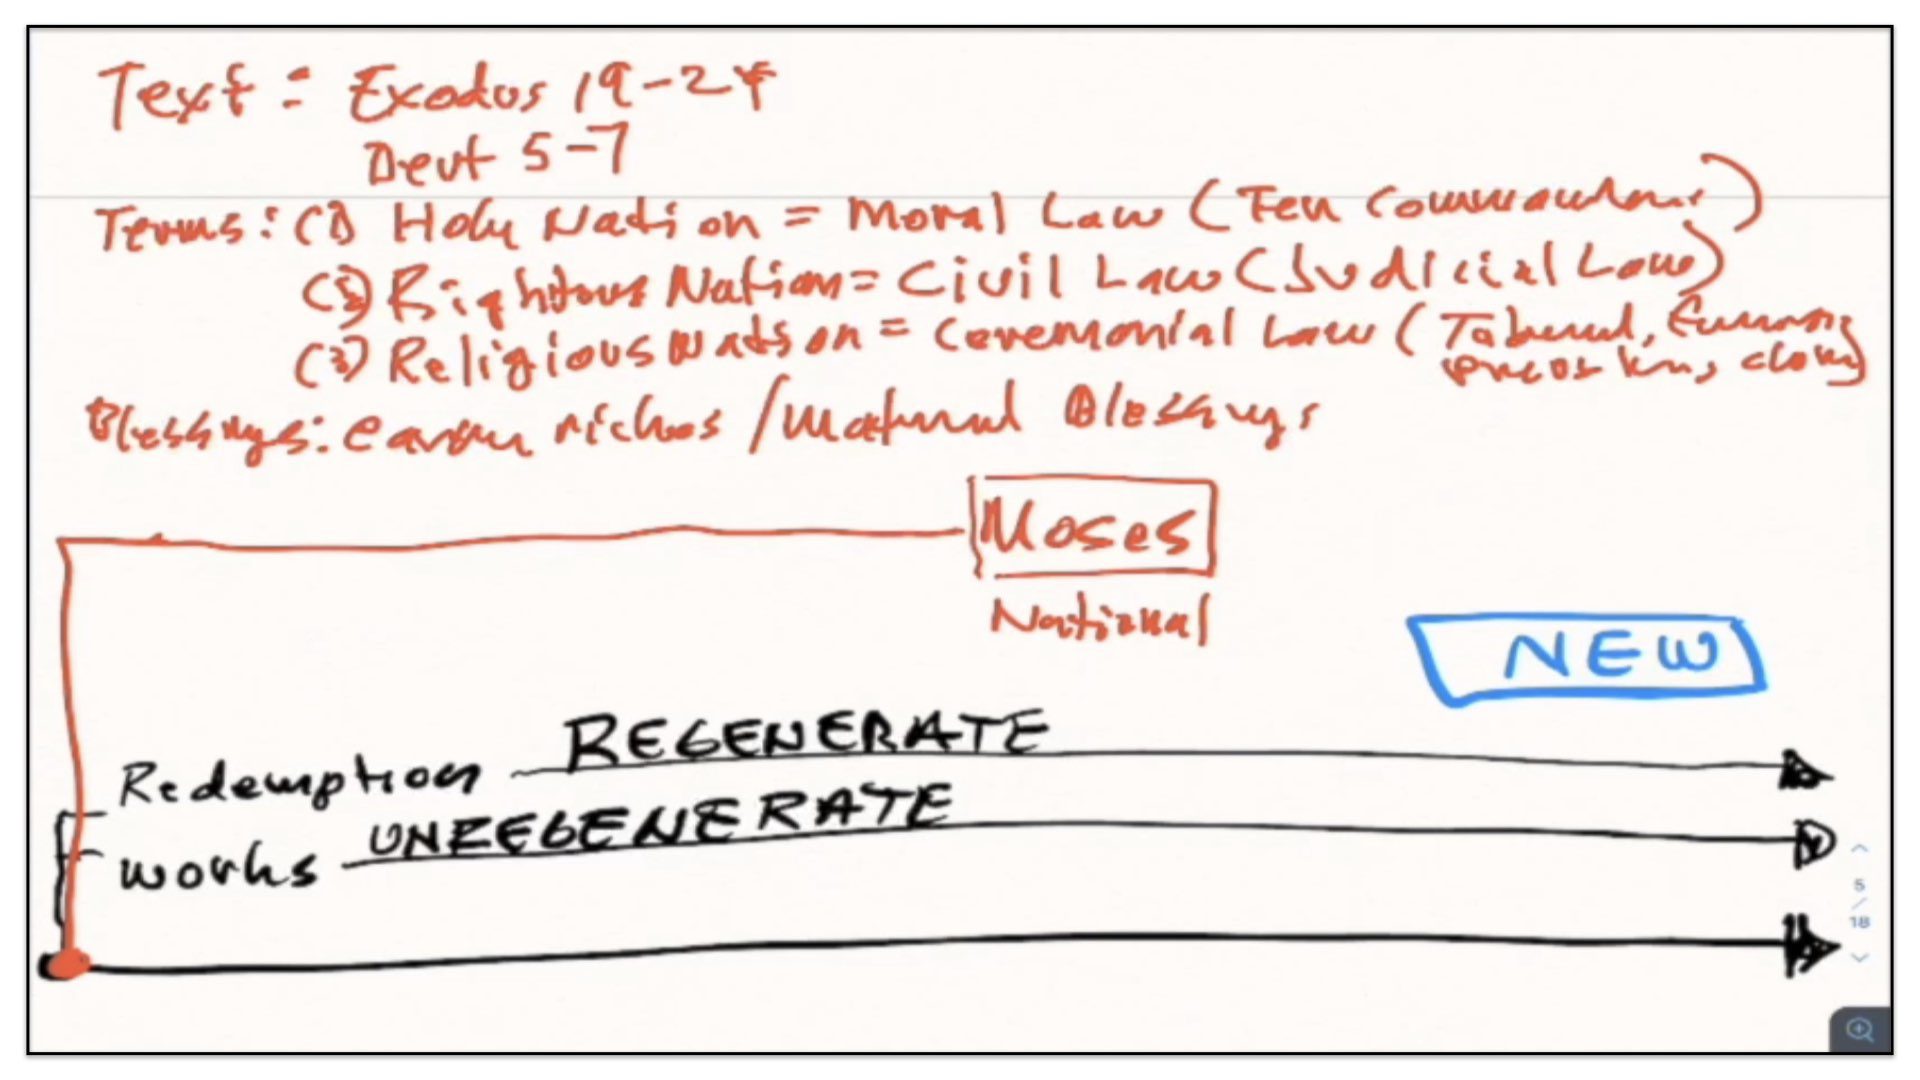 Text: Exodus 19-24
Deut 5-7
Terms: (1) Holy Nation = Moral Law (Ten Commandms)
(2) Righteous Nation = Civil Law (Judicial Law)
(3) Religious Nation = Ceremonial Law (
Blessings: riches / Material Blessings
Moses
National
NEW
REGENERATE
Redemption
UNREGENERATE
works
5
/
18